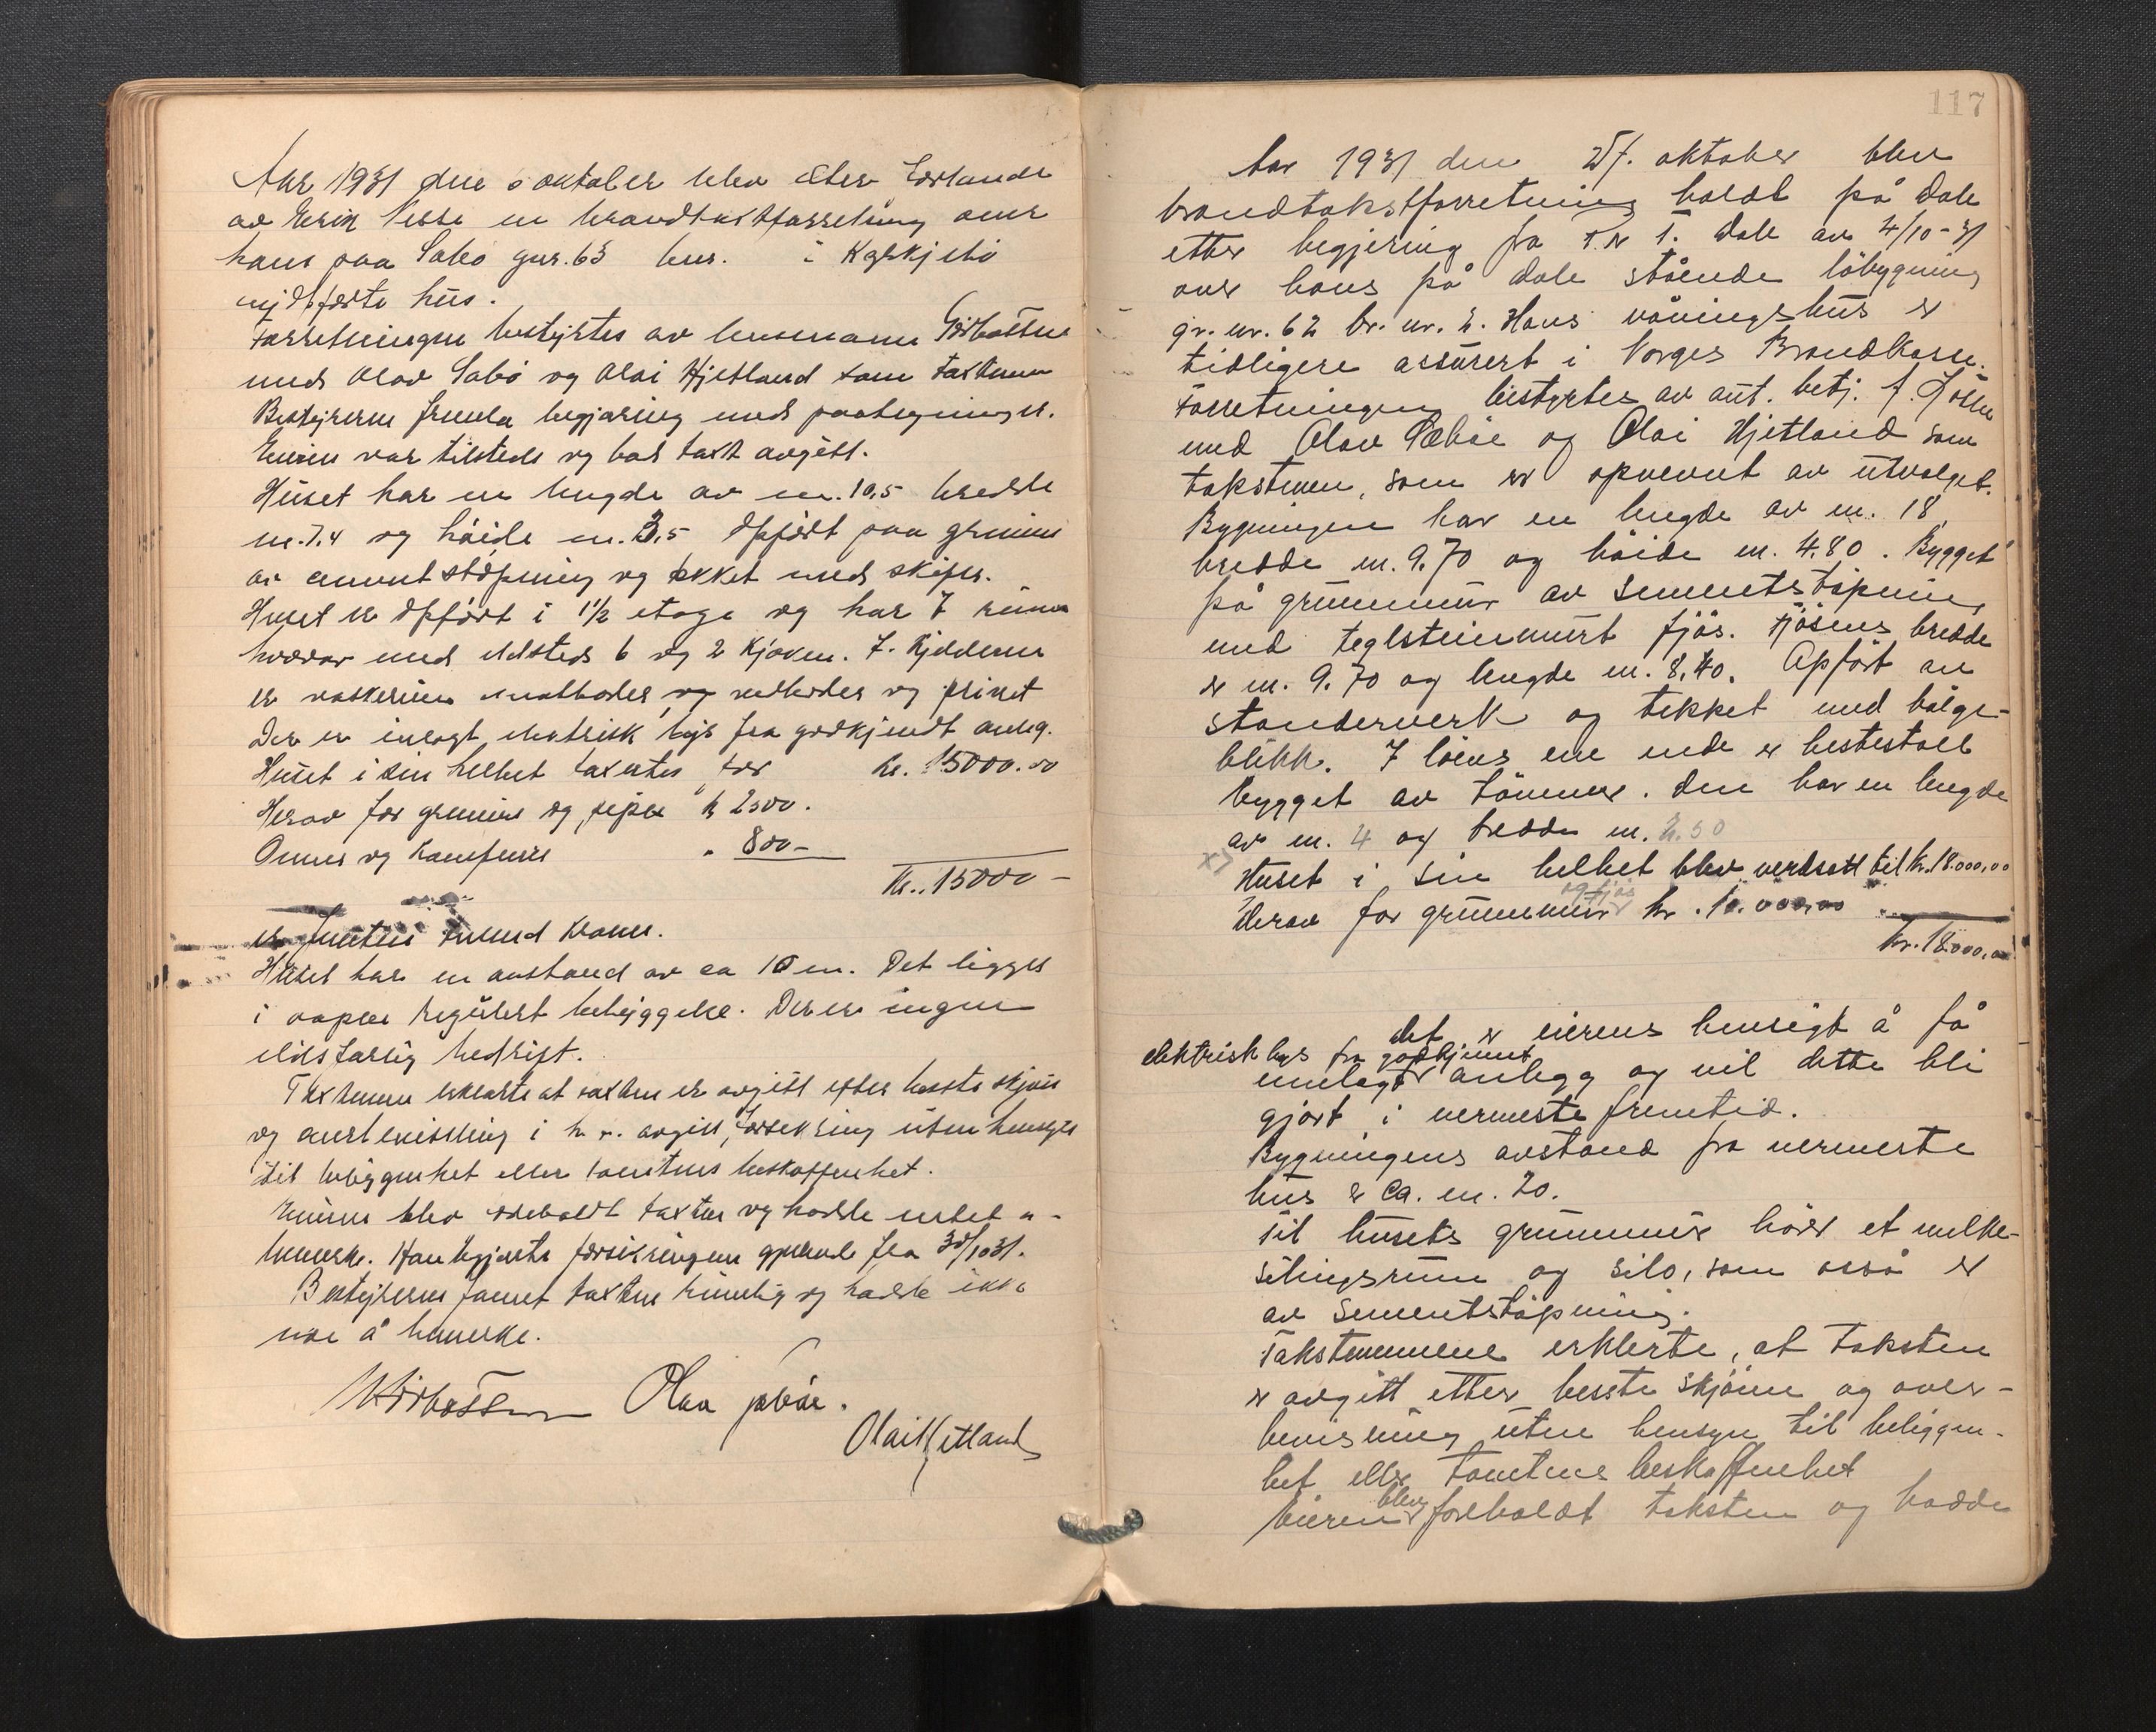 Aar 1931 den oktober blev efter forlande
av Erik Nesse en brandtaxtforretning over
hans paa Sæbø gnr. 63 bnr. i Kyrkjebø
nyopførte hus.
Forretningen bestyrtes av lensmann
med Olav Sæbø og Olai Hjetland som taxtmenn
Bestyreren fremla begjæring med paategninger.
Eieren var tilstede og bad taxt avgitt.
Huset har en lengde av m. 10,5 bredde
m. 7,4 og høide m. 3,5 Opført paa grunmur
av cementstøpning og tekket med skifer.
Huset er opført i 1 1/2 etage og har 7 rum
hvorav med ildsted 6 og 2 kjøken. I kjelderen
er vaskerum matboder og vedboder og
Der er inlagt elektrisk lys fra godkjendt anleg.
Huset i sin helhet taxertes for kr. 15000.00
Herav for grunmur og piper kr 2500.
Ovner og komfurer " 800 –
Kr. 15000 –
er
Huset har en avstand av ca 10 m. Det ligger
i aapen regulert bebyggelse. Der er ingen
ildsfarlig bedrift.
Taxtmenn erklærte at taxten er avgitt efter beste skjøn
og overbevisning i h. t. avgitt forsikring uten hensyn
til beliggenhet eller tomtens beskaffenhet.
Eieren blev foreholdt taxten og hadde intet a-
bemerke. Han begjærte forsikringen gjeldende fra 30/10 31.
Bestyreren fannt taxten rimelig og hadde ikke
noe å bemerke.
Olav Sæbøe.
Olai Hjetland
117
Aar 1931 den 27. oktober blev
brandtakstforretning holdt på Dale
etter begjering fra T. N. T. Dale av 4/10-31
over hans på Dale stående løbygning
gr. nr. 62 br. nr. 2. Hans våningshus er
tidligere assurert i Norges Brandkasse.
Forretningen bestyrtes av aut. betj. A.
med Olav Sæbøe og Olai Hjetland som
takstmenn, som er opnevnt av utvalget.
Bygningen har en lengde av m. 18,
bredde m. 9.70 og høide m. 4.80. Bygget
på grunnmur av sementstøpning
med teglsteinmurt fjøs. Fjøsens bredde
er m. 9.70 og lengde m. 8,40. Opført av
standerverk og tekket med bølge-
blikk. I løens ene ende er hestestall
bygget av tømmer. Den har en lengde
av m. 4 og bredde m. 2.50
x) Huset i sin helhet blev verdsatt til kr. 18.000,00
og fjøs
Derav for grunnmur kr. 10.000,00
Kr. 18.000,00
det er eierens hensigt å få
elektrisk lys fra godkjennt
innlagt anlegg og vil dette bli
gjort i nermeste fremtid.
Bygningens avstand fra nermeste
hus er ca. m. 20.
Til husets grunnmur hører et melke-
silingsrum og silo, som også er
av sementstøpning.
Takstmennene erklerte, at taksten
er avgitt etter beste skjønn og over-
bevisning uten hensyn til beliggen-
het eller tomtens beskaffenhet
blev
Eieren foreholdt taksten og hadde